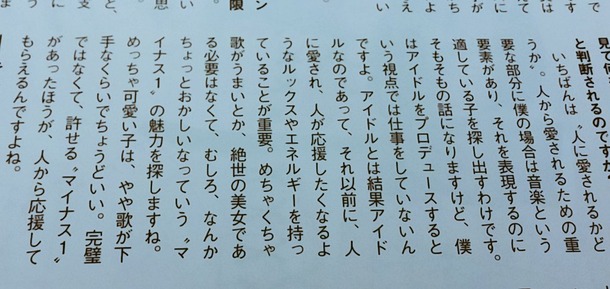 と判断されるのですか？
いちばんは〝人に愛されるかど
うか〟。人から愛されるための重
要な部分に僕の場合は音楽という
要素があり、それを表現するのに
適している子を探し出すわけです。
そもそもの話になりますけど、僕
はアイドルをプロデュースすると
いう視点では仕事をしていないん
ですよ。アイドルとは結果アイド
ルなのであって、それ以前に、人
に愛され、人が応援したくなるよ
うなルックスやエネルギーを持っ
ていることが重要。めちゃくちゃ
歌がうまいとか、絶世の美女であ
る必要はなくて、むしろ、なんか
ちょっとおかしいなっていう〝マ
イナス1〟の魅力を探しますね。
めっちゃ可愛い子は、やや歌が下
手なくらいでちょうどいい。完璧
ではなくて、許せる〝マイナス1〟
があったほうが、人から応援して
もらえるんですよね。